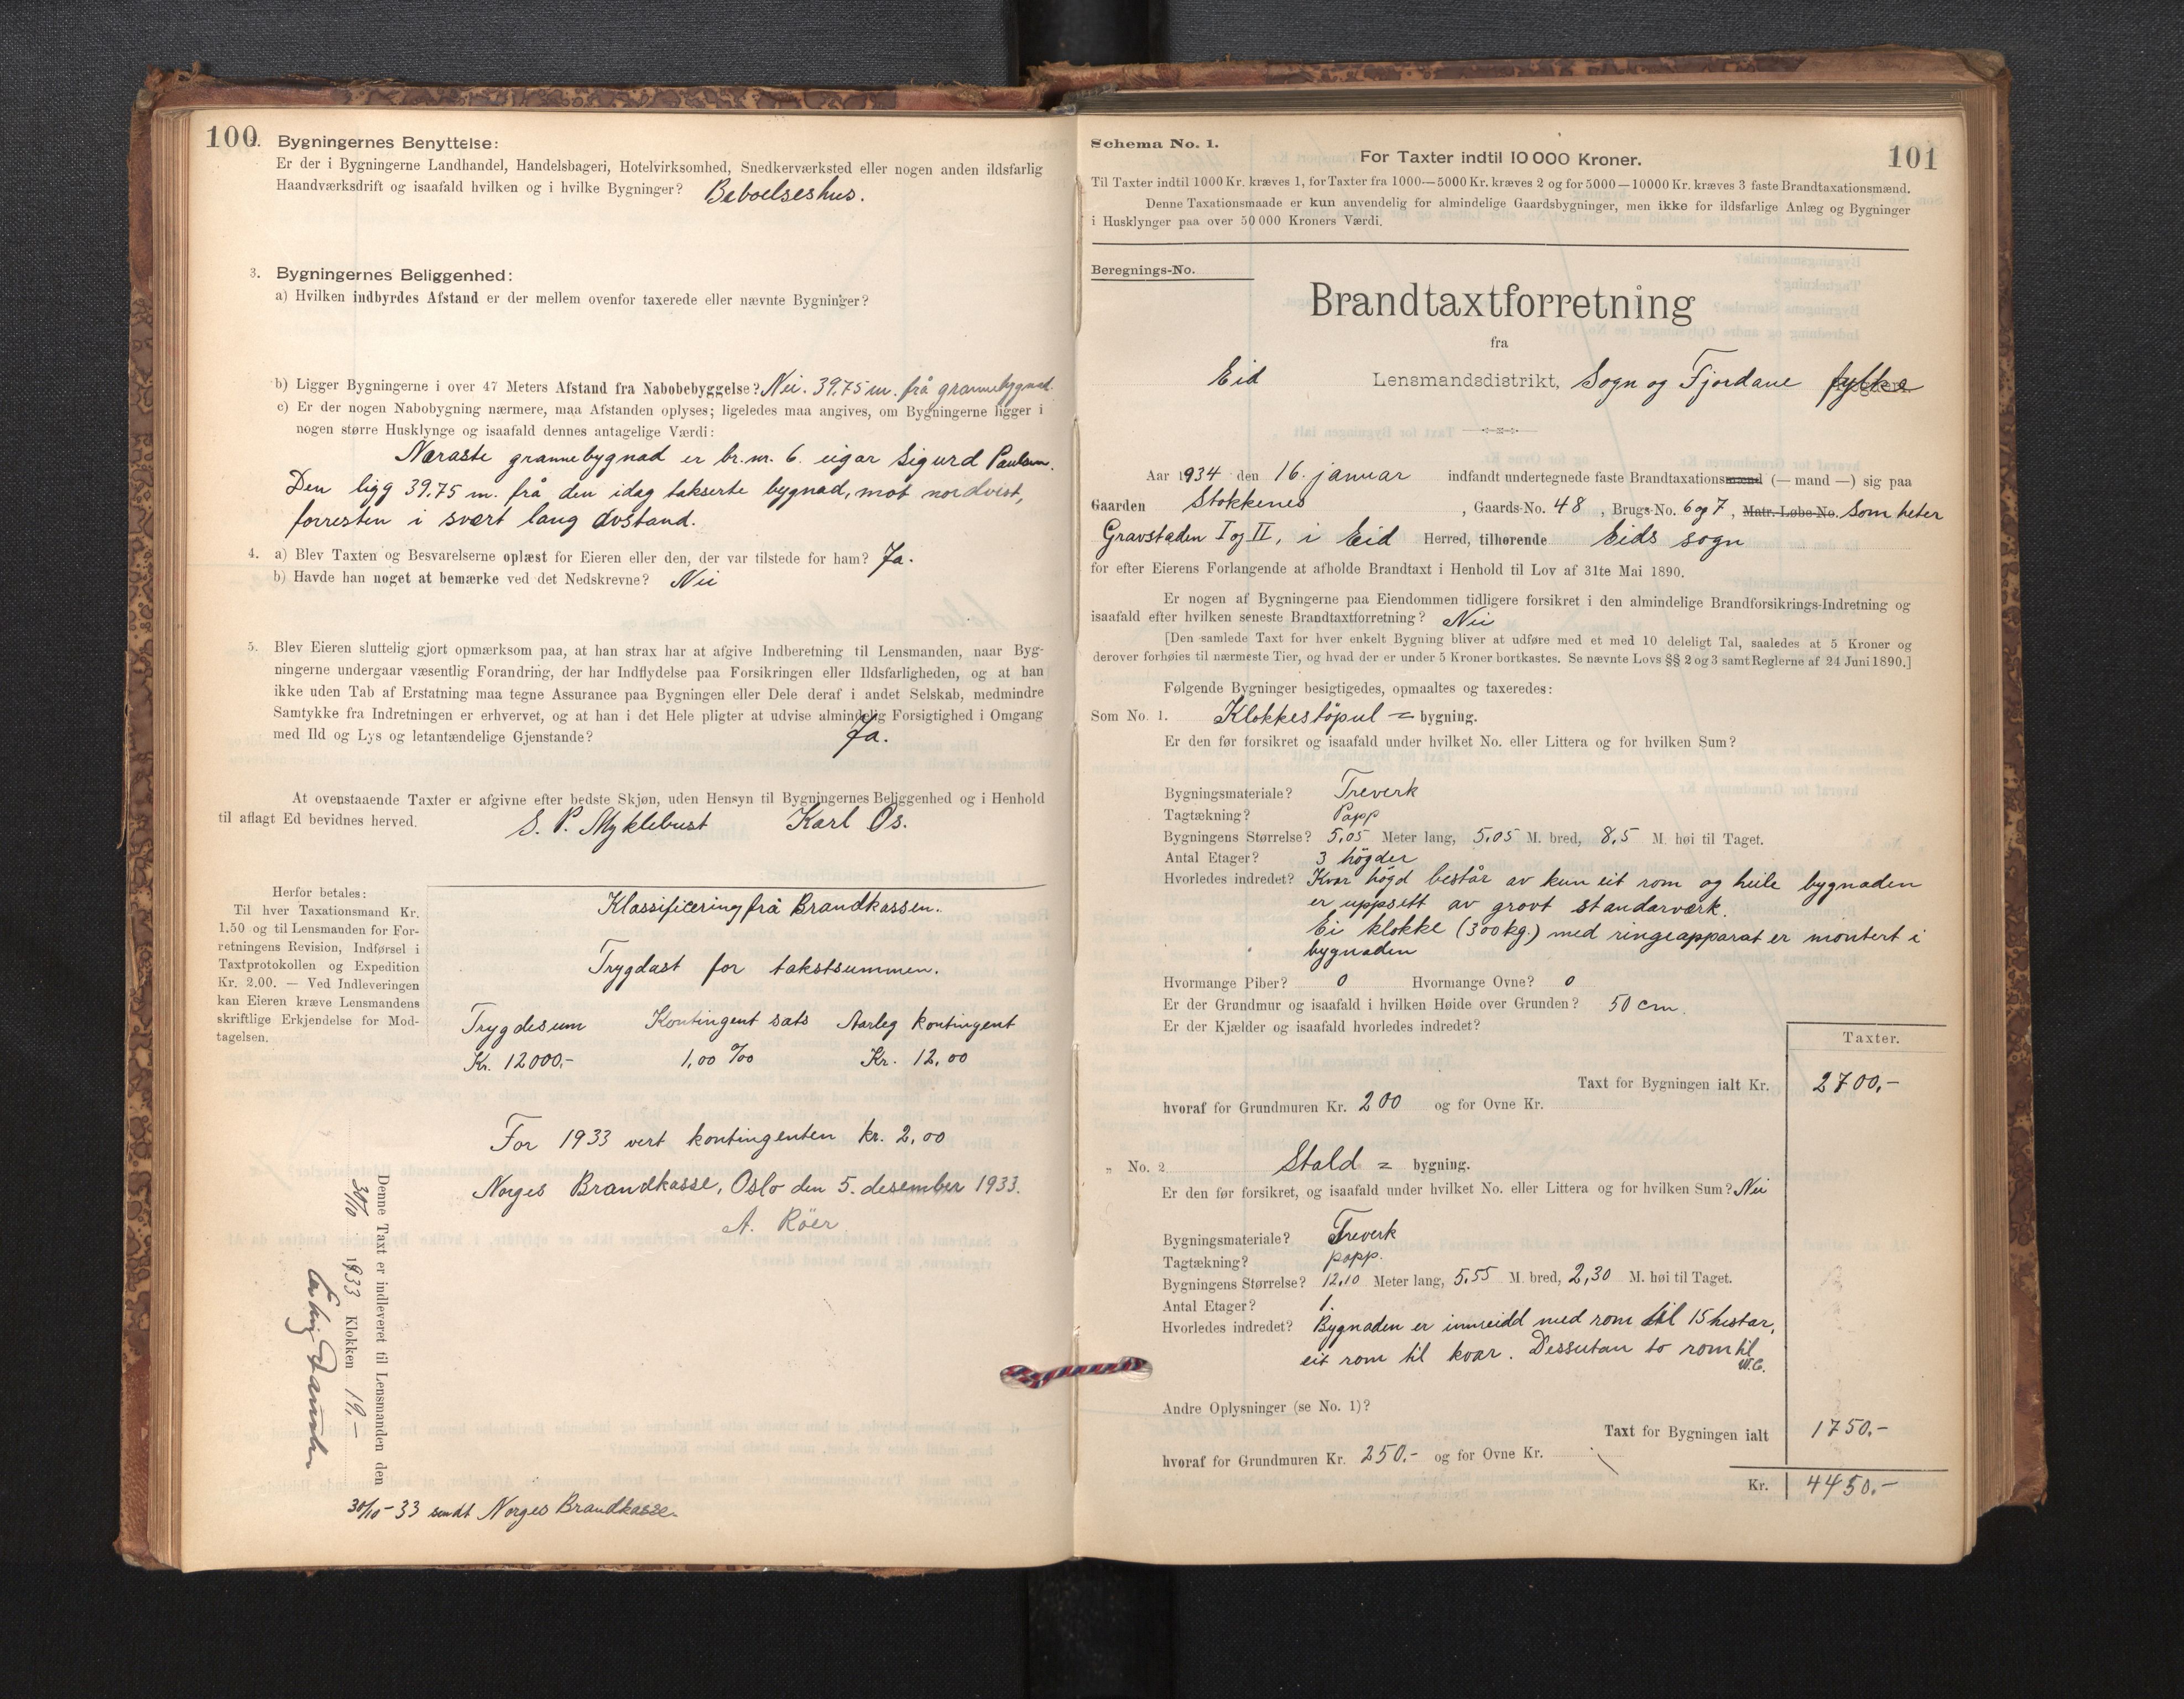 100
2. Bygningernes Benyttelse:
Er der i Bygningerne Landhandel, Handelsbageri, Hotelvirksomhed, Snedkerværksted eller nogen anden ildsfarlig
Haandværksdrift og isaafald hvilken og i hvilke Bygninger? Beboelseshus.
3. Bygningernes Beliggenhed:
a) Hvilken indbyrdes Afstand er der mellem ovenfor taxerede eller nævnte Bygninger?
b) Ligger Bygningerne i over 47 Meters Afstand fra Nabobebyggelse? Nei. 39,75 m. frå grannebygnad.
c) Er der nogen Nabobygning nærmere, maa Afstanden oplyses; ligeledes maa angives, om Bygningerne ligger i
nogen større Husklynge og isaafald dennes antagelige Værdi:
Næraste grannebygnad er br.nr. 6. eigar Sigurd Paulsen.
Den ligg 39,75 m. frå den idag takserte bygnad, mot nordvest,
forresten i svært lang avstand.
4. a) Blev Taxten og Besvarelserne oplæst for Eieren eller den, der var tilstede for ham? Ja.
b) Havde han noget at bemærke ved det Nedskrevne? Nei
5. Blev Eieren sluttelig gjort opmærksom paa, at han strax har at afgive Indberetning til Lensmanden, naar Byg-
ningerne undergaar væsentlig Forandring, der har Indflydelse paa Forsikringen eller Ildsfarligheden, og at han
ikke uden Tab af Erstatning maa tegne Assurance paa Bygningen eller Dele deraf i andet Selskab, medmindre
Samtykke fra Indretningen er erhvervet, og at han i det Hele pligter at udvise almindelig Forsigtighed i Omgang
med Ild og Lys og letantændelige Gjenstande? Ja.
At ovenstaaende Taxter er afgivne efter bedste Skjøn, uden Hensyn til Bygningernes Beliggenhed og i Henhold
til aflagt Ed bevidnes herved. S. P. Myklebust Karl Os.
Herfor betales:
Til hver Taxationsmand Kr.
1.50 og til Lensmanden for For-
retningens Revision, Indførsel i
Taxtprotokollen og Expedition
Kr. 2.00. — Ved Indleveringen
kan Eieren kræve Lensmandens
skriftlige Erkjendelse for Mod-
tagelsen.
Klassificering frå Brandkassen.
Trygdast for takstsummen.
Trygdesum Kontingent sats Aarleg kontingent
Kr. 12000,- 1,00 ‰ Kr. 12,00
For 1933 vert kontingenten kr. 2,00
Norges Brandkasse, Oslo den 5. desember 1933.
A. Röer
Denne Taxt er indleveret til Lensmanden den
30/10 1933 Klokken 19,-
30/10-33 sendt Norges Brandkasse.
Schema No. 1.
For Taxter indtil 10 000 Kroner.
101
Til Taxter indtil 1000 Kr. kræves 1, for Taxter fra 1000—5000 Kr. kræves 2 og for 5000—10000 Kr. kræves 3 faste Brandtaxationsmænd.
Denne Taxationsmaade er kun anvendelig for almindelige Gaardsbygninger, men ikke for ildsfarlige Anlæg og Bygninger
i Husklynger paa over 50 000 Kroners Værdi.
Beregnings-No.
Brandtaxtforretning
fra
Eid Lensmandsdistrikt, Sogn og Fjordane fylke
Aar 1934 den 16. januar indfandt undertegnede faste Brandtaxationsmænd (— mand —) sig paa
Gaarden Stokkenes, Gaards-No. 48, Brugs-No. 6 og 7, Matr.-Løbe-No. Som heter
Gravstaden I og II, i Eid Herred, tilhørende Eids sogn
for efter Eierens Forlangende at afholde Brandtaxt i Henhold til Lov af 31te Mai 1890.
Er nogen af Bygningerne paa Eiendommen tidligere forsikret i den almindelige Brandforsikrings-Indretning og
isaafald efter hvilken seneste Brandtaxtforretning? Nei
[Den samlede Taxt for hver enkelt Bygning bliver at udføre med et med 10 deleligt Tal, saaledes at 5 Kroner og
derover forhøies til nærmeste Tier, og hvad der er under 5 Kroner bortkastes. Se nævnte Lovs §§ 2 og 3 samt Reglerne af 24 Juni 1890.]
Følgende Bygninger besigtigedes, opmaaltes og taxeredes:
Som No. 1. Klokkestöpul = bygning.
Er den før forsikret og isaafald under hvilket No. eller Littera og for hvilken Sum?
Bygningsmateriale? Treverk
Tagtækning? Papp
Bygningens Størrelse? 5,05 Meter lang, 5,05 M. bred, 8,5 M. høi til Taget.
Antal Etager? 3 högder
Hvorledes indredet? Kvar högd består av kun eit rom og heile bygnaden
er uppsett av grovt standarverk.
Ei klokke (300 kg.) med ringeapparat er montert i
bygnaden
Hvormange Piber? 0 Hvormange Ovne? 0
Er der Grundmur og isaafald i hvilken Høide over Grunden? 50 cm.
Er der Kjælder og isaafald hvorledes indredet?
Taxter.
Taxt for Bygningen ialt Kr. 2700,-
hvoraf for Grundmuren Kr. 200 og for Ovne Kr.
„ No. 2 Stald = bygning.
Er den før forsikret, og isaafald under hvilket No. eller Littera og for hvilken Sum? Nei
Bygningsmateriale? Treverk
Tagtækning? papp.
Bygningens Størrelse? 12,10 Meter lang, 5,55 M. bred, 2,30 M. høi til Taget.
Antal Etager? 1.
Hvorledes indredet? Bygnaden er innreidd med rom til 15 hestar,
eit rom til kvar. Dessutan to rom til
W.C.
Andre Oplysninger (se No. 1)?
Taxt for Bygningen ialt 1750.-
hvoraf for Grundmuren Kr. 250.- og for Ovne Kr.
Kr. 4450.-